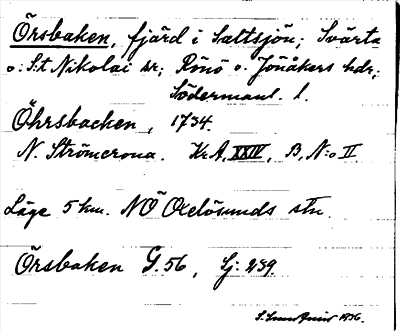 Örsbaken, fjärd i Saltsjön; Svärta
o. S:t Nikolai sr; Rönö o. Jönåkers hdr;
Södermanl. l.
Öhrsbacken, 1734.
N. Strömcrona. Kr.A, XXIV, B, N:o II.
Läge 5 km. NÖ Oxelösunds stn.
Örsbaken G. 56, Sj: 239.
1936.